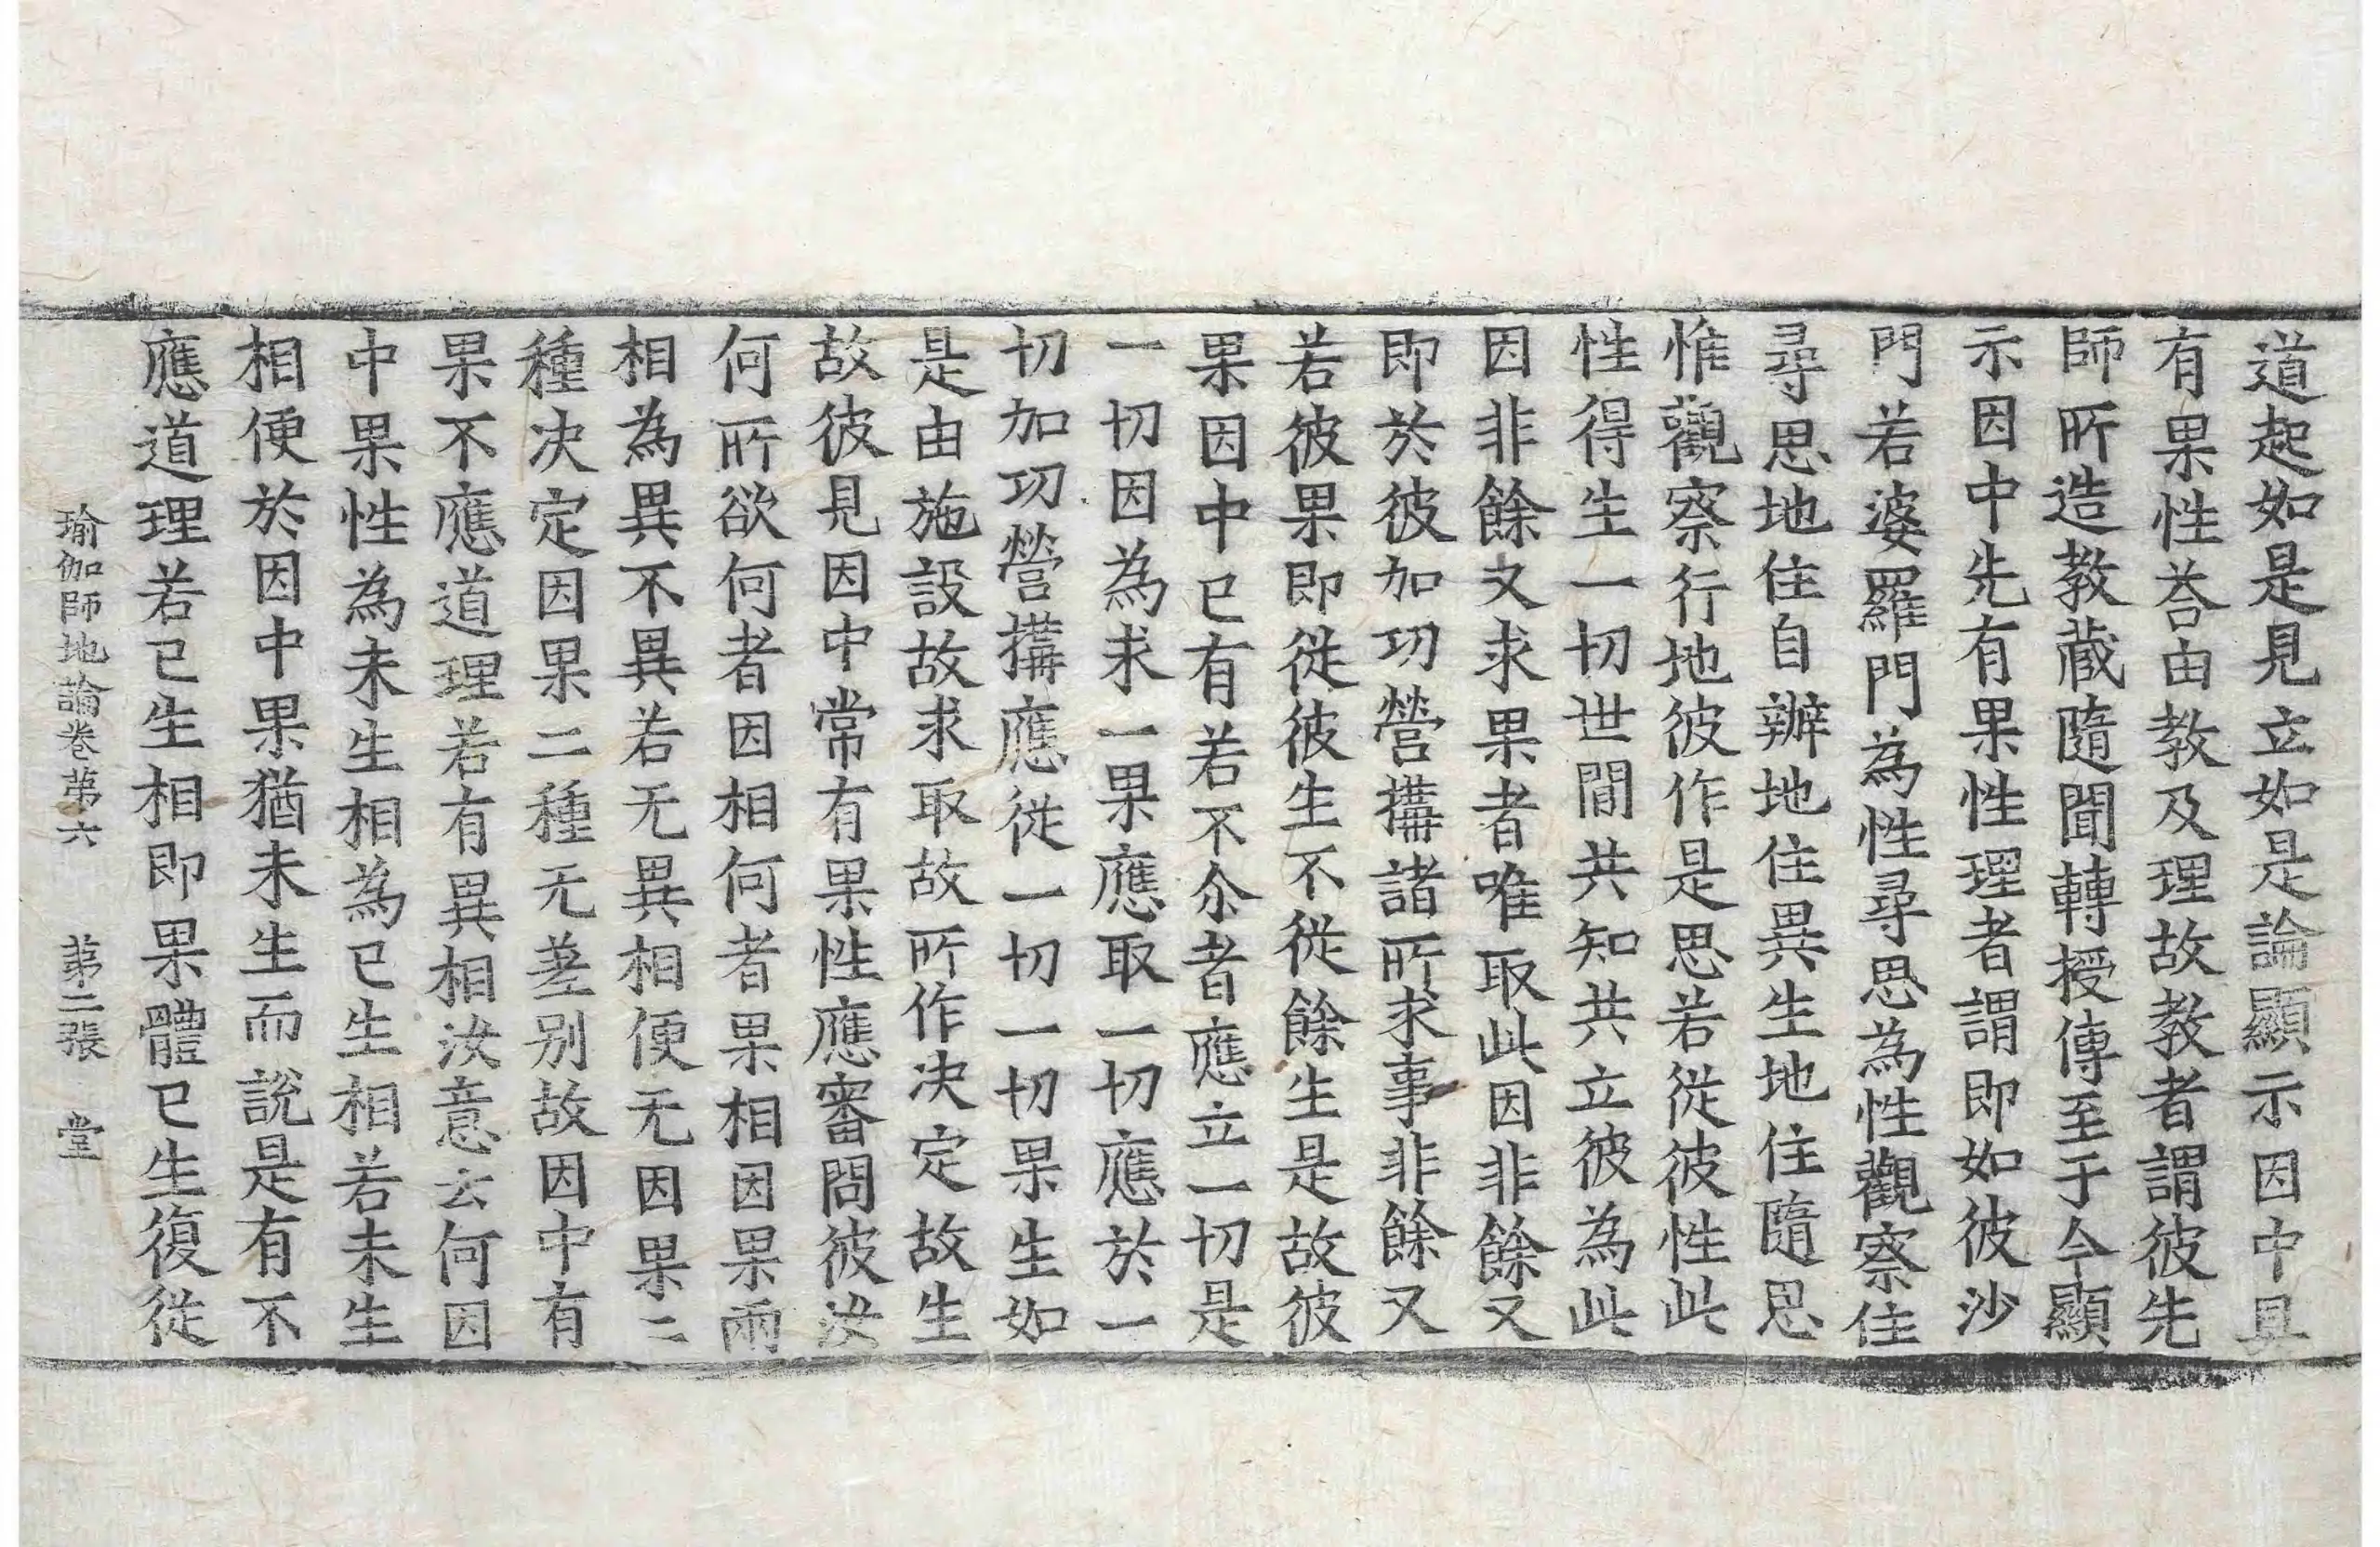 道起如是見立如是論顯示因中具
有果性荅由教及理故教者謂彼先
師所造教藏隨聞轉授傳至于今顯
示因中先有果性理者謂即如彼沙
門若婆羅門為性尋思為性觀察住
尋思地住自辦地住異生地住隨思
惟觀察行地彼作是思若從彼性此
性得生一切世間共知共立彼為此
因非餘又求果者唯取此因非餘又
即於彼加功營搆諸所求事非餘又
若彼果即從彼生不從餘生是故彼
果因中已有若不尒者應立一切是
一切因為求一果應取一切應於一
切加功營搆應從一切一切果生如
是由施設故求取故所作决定故生
故彼見因中常有果性應審問彼汝
何所欲何者因相何者果相因果兩
相為異不異若无異相便无因果二
種决定因果二種无差别故因中有
果不應道理若有異相汝意云何因
中果性為未生相為已生相若未生
相便於因中果猶未生而說是有不
應道理若已生相即果體已生復從
瑜伽師地論卷第六 第二張 堂